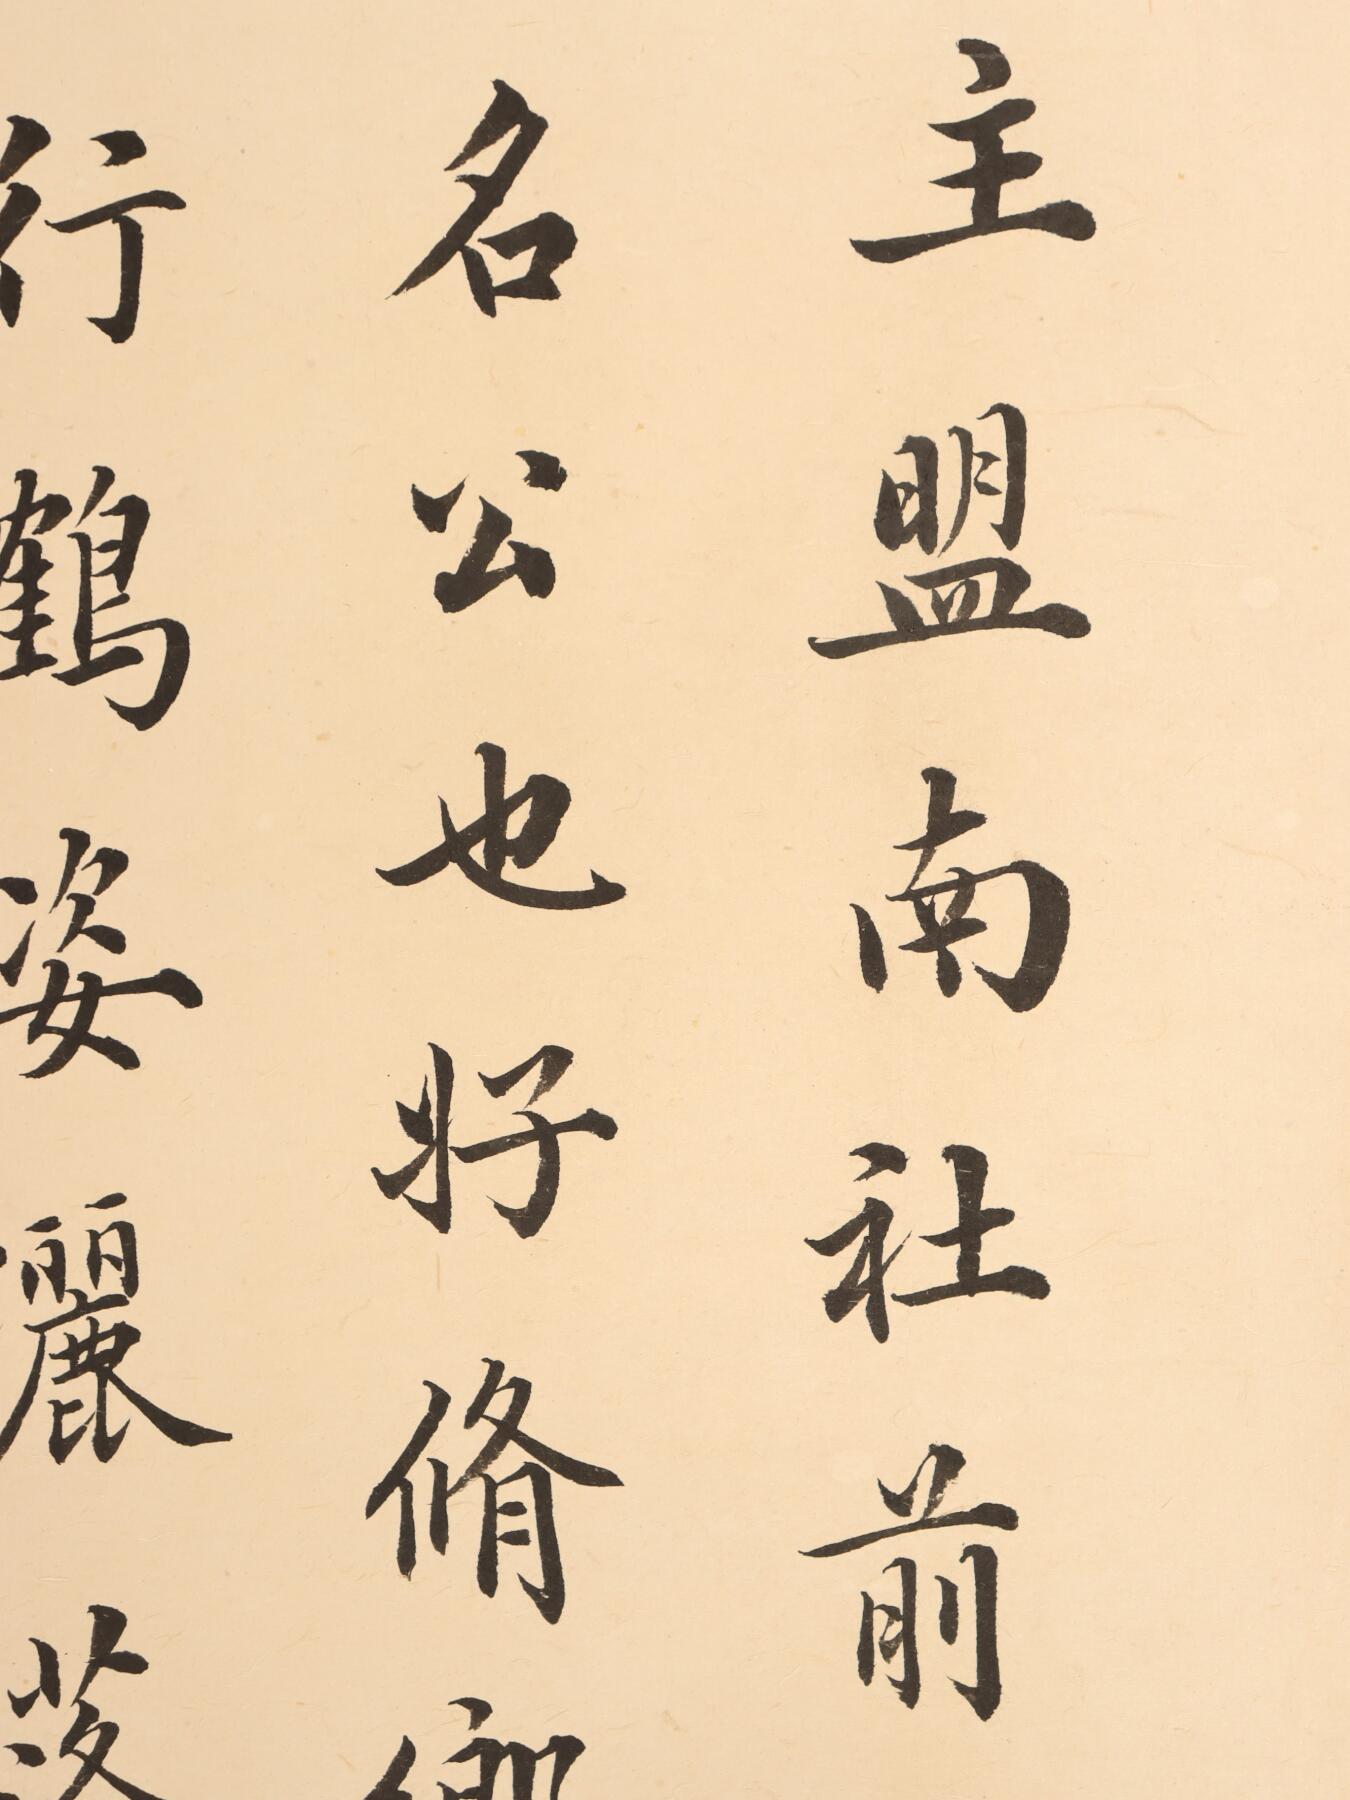 主盟南社前
名公也好脩
行鶴姿麗落